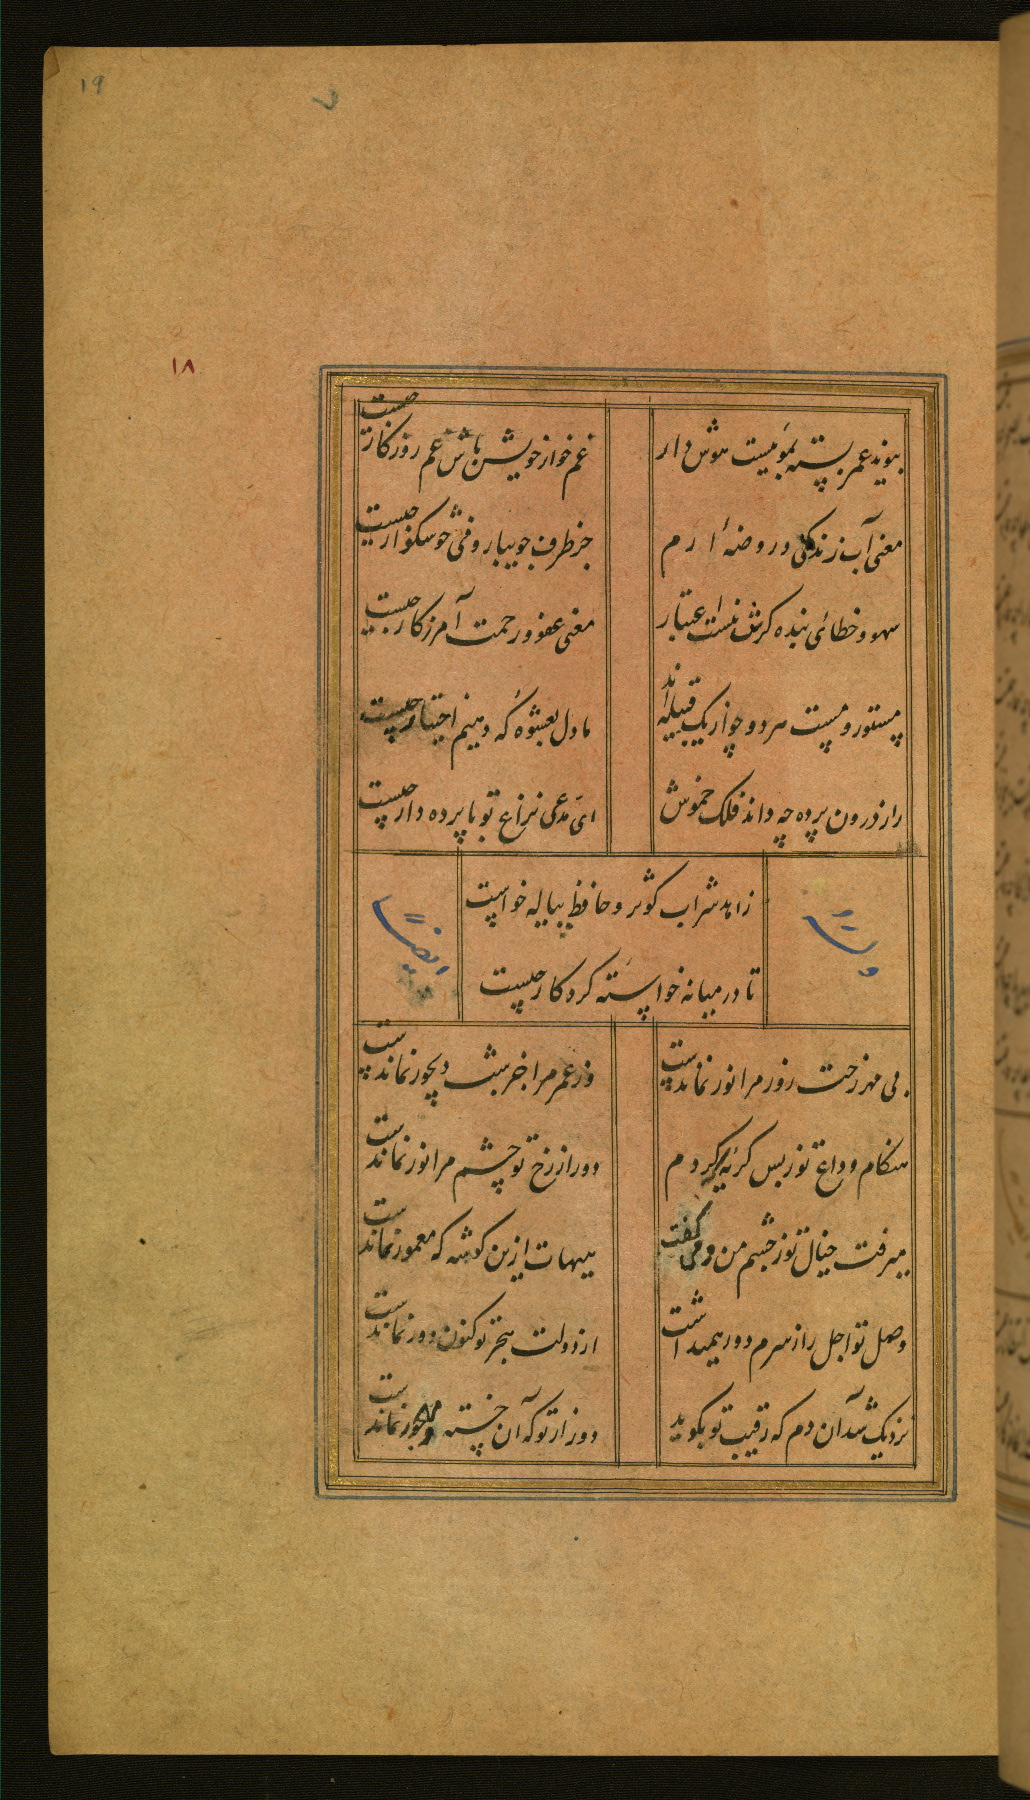 ۱۹
۱۸
پیوند عمر بسته بموئیست هوش دار
غم خوار خویش باش غم روزکار چیست
معنی آب زندکی و روضهٔ ارم
جز طرف جویبار و می خوشکوار چیست
سهو و خطائی بنده کرش نیست اعتبار
معنی عفو و رحمت آمرزکار چیست
مستور و مست هر دو چو از یک قبیله اند
ما دل بعشوهٔ که دهیم اختیار چیست
راز درون پرده چه داند فلک خموش
ای مدعی نزاع تو با پرده دار چیست
زاهد شراب کوثر و حافظ پیاله خواست
تا در میانه خواستهٔ کردکار چیست
ایضاً
بی مهر رخت روز مرا نور نماندست
وز عمر مرا جز شب دیجور نماندست
هنکام وداع تو ز بس کریه کردم
دور از رخ تو چشم مرا نور نماندست
میرفت خیال تو ز چشم من و می کفت
هیهات ازین کوشه که معمور نماندست
وصل تو اجل را ز سرم دور همیداشت
از دولت هجر تو کنون دور نماندست
نزدیک شد آن دم که رقیب تو بکوید
دور از تو که آن خسته مهجور نماندست